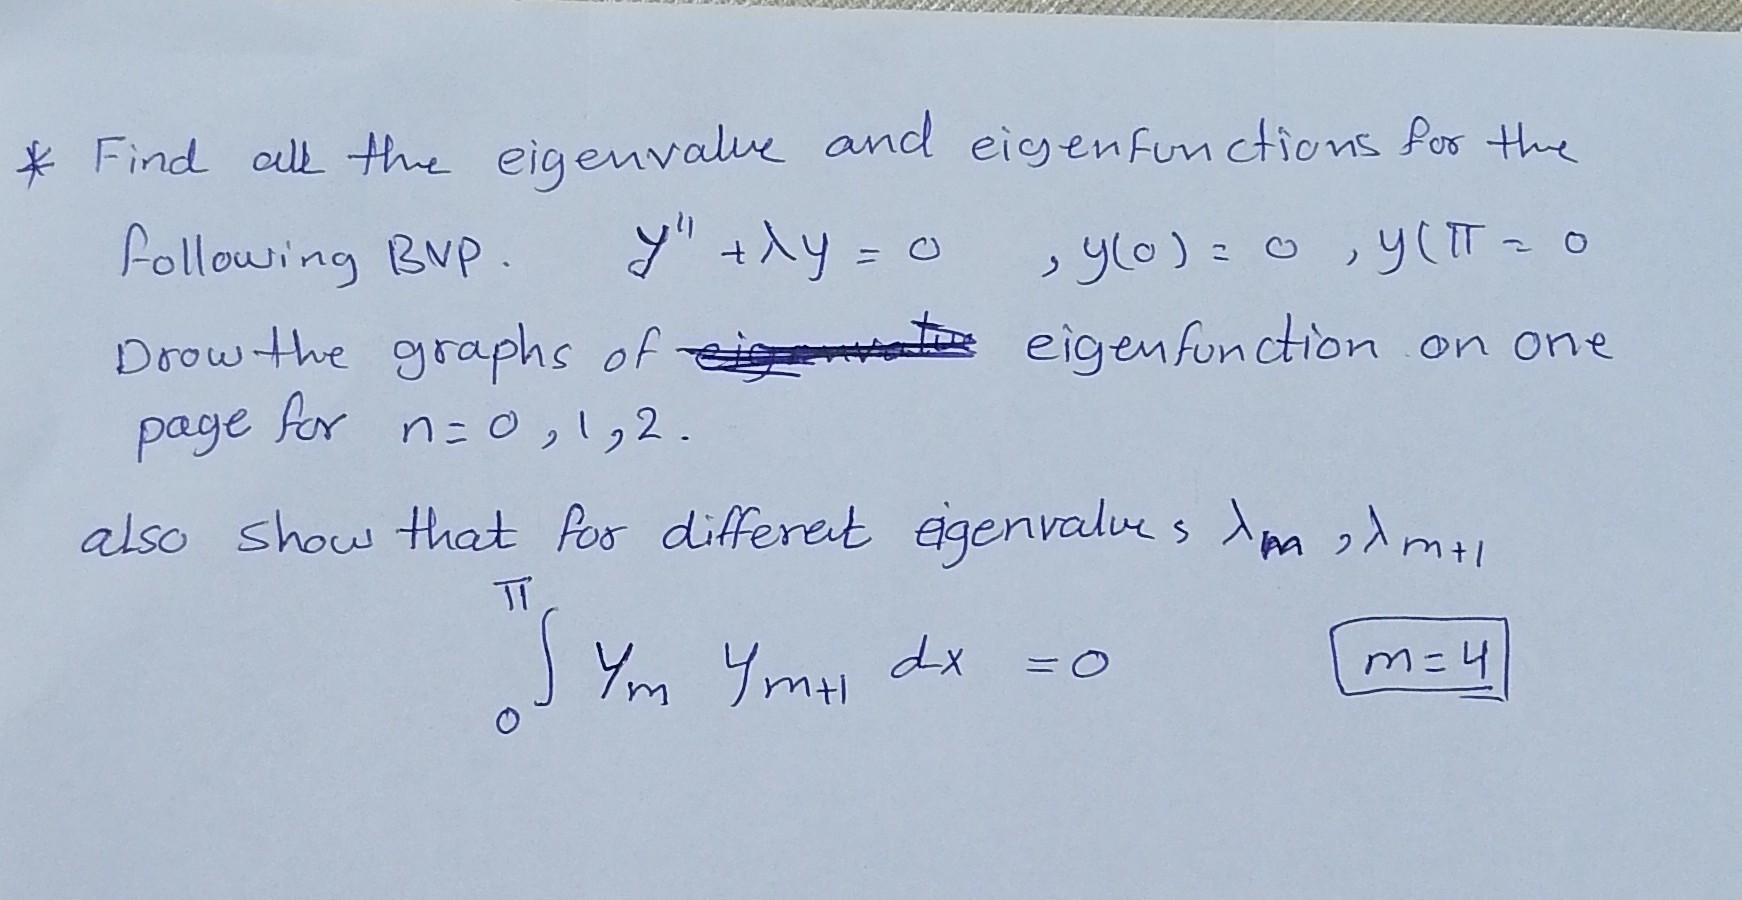 * Find all the eigenvalue and eigenfunctions for the
following BVP. y'' + λy = 0 , y(0) = 0 , y(π = 0
Drow the graphs of eigenfunction on one
page for n=0,1,2.
also show that for different eigenvalues λm , λm+1
∫₀^π Ym Ym+1 dx = 0 m=4